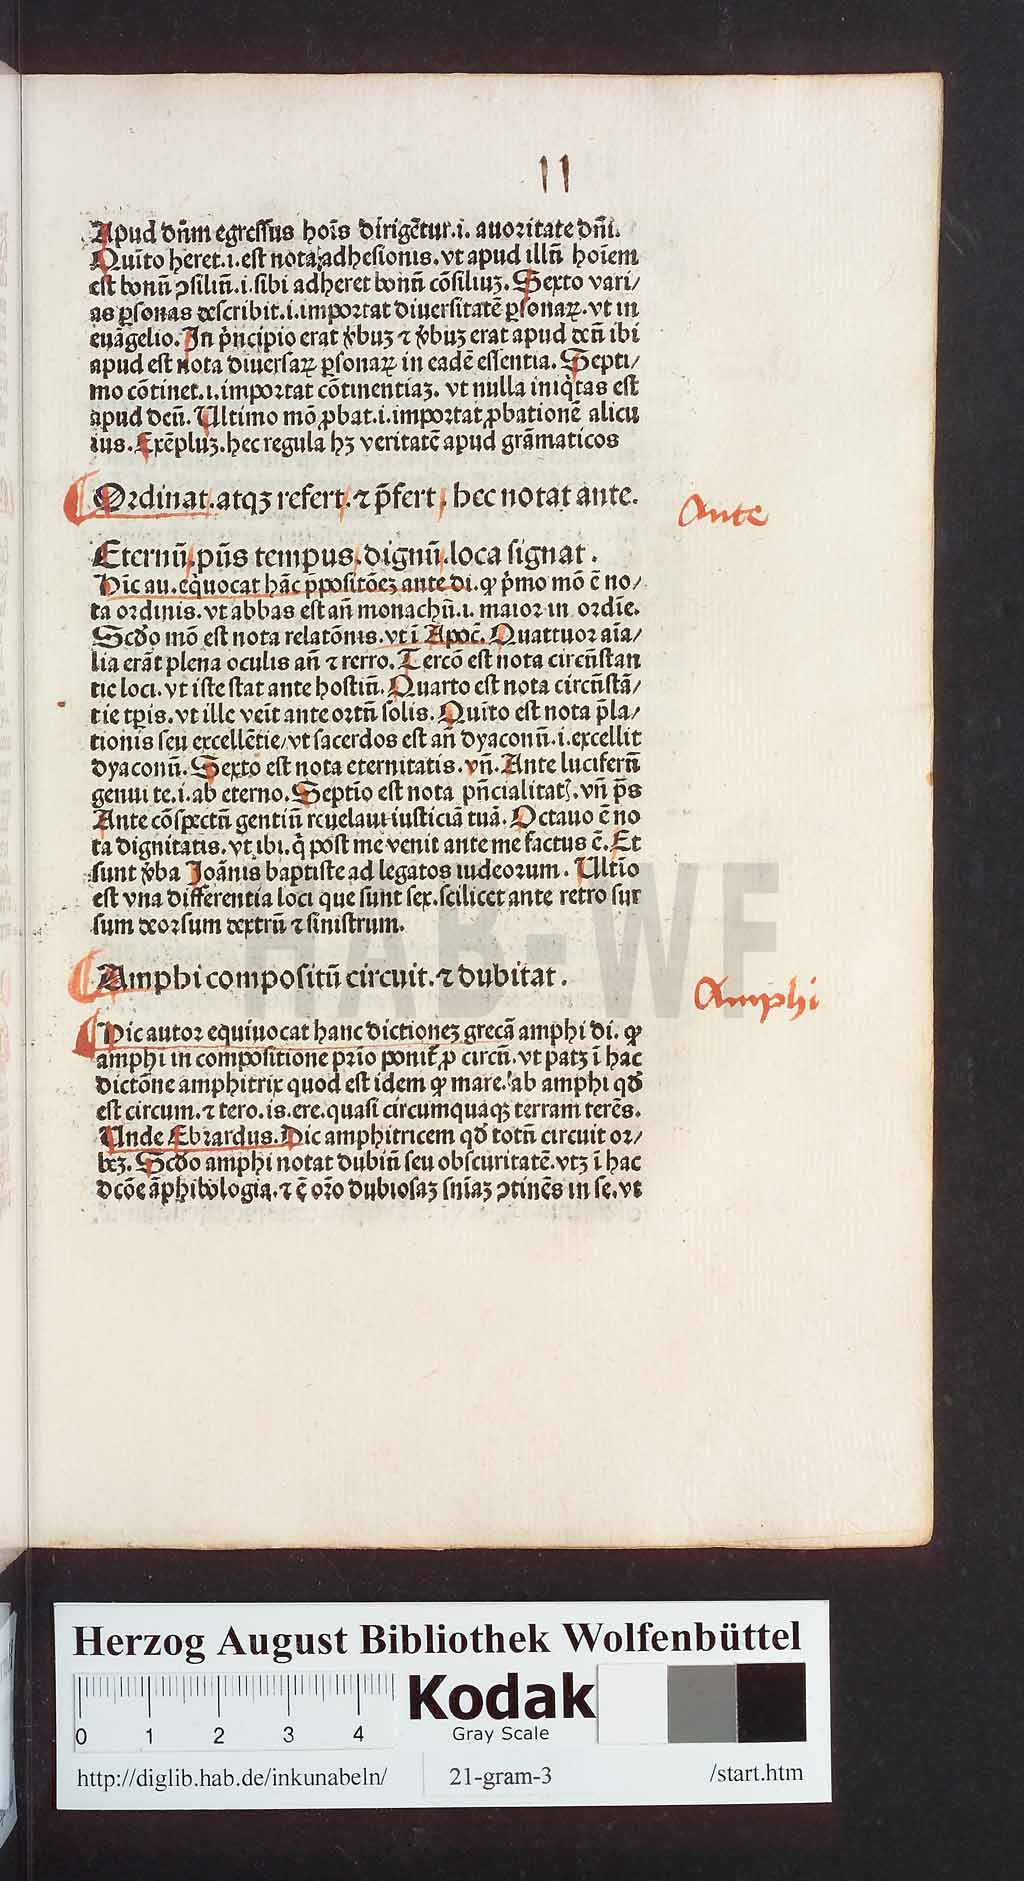 11
Apud dñm egressus hoĩs dirigẽtur.i. auoritate dñi.
Quĩto heret.i.est nota adhesionis.vt apud illũ hoĩem
est bonũ ↄsiliũ.i.sibi adheret bonũ cõsiliuʒ. Sexto vari/
as ꝑsonas describit.i.importat diuersitatẽ ꝑsonaꝝ.vt in
euãgelio. In pͥncipio erat v̾buʒ ⁊ v̾buʒ erat apud deũ ibi
apud est nota diuersaꝝ ꝑsonaꝝ in eadẽ essentia. Septi/
mo cõtinet.i.importat cõtinentiaʒ. vt nulla iniqͥtas est
apud deũ. Ultimo mõ ꝓbat.i.importat ꝓbationẽ alicu
ius. Exẽpluʒ.hec regula hʒ veritatẽ apud grãmaticos
Ordinat.atqʒ refert. ⁊ p̃fert. hec notat ante.
Ante
Eternũ.pñs tempus.dignũ.loca signat.
Hic au.equocat hãc p̃positõeʒ ante di.ꝙ pͥmo mõ ẽ no/
ta ordinis.vt abbas est añ monachũ.i. maior in ordĩe.
Scđo mõ est nota relatõnis.vt ĩ Apoc̃. Quattuor aĩa/
lia erãt plena oculis añ ⁊ retro. Tercõ est nota circũstan
tie loci.vt iste stat ante hostiũ. Quarto est nota circũstã/
tie tp̃is.vt ille veĩt ante ortũ solis. Quĩto est nota p̃la/
tionis seu excellẽtie/vt sacerdos est añ dyaconũ.i.excellit
dyaconũ. Sexto est nota eternitatis.vñ. Ante luciferũ
genui te.i.ab eterno. Septĩo est nota pñcialitatꝭ.vñ p̃s
Ante cõspectũ gentiũ reuelauit iusticiã tuã. Octauo ẽ no
ta dignitatis.vt ibi.qͥ post me venit ante me factus ẽ. Et
sunt v̾ba Joãnis baptiste ad legatos iudeorum. Ultĩo
est vna differentia loci que sunt sex.scilicet ante retro sur
sum deorsum dextrũ ⁊ sinistrum.
Amphi compositũ circuit.⁊ dubitat.
Amphi
Hic autor equiuocat hanc dictioneʒ grecã amphi di. ꝙ
amphi in compositione prĩo ponit̃ ꝓ circũ.vt patʒ ĩ hac
dictõne amphitrix quod est idem ꝙ mare. ab amphi qđ
est circum.⁊ tero.is.ere.quasi circumquaqʒ terram terẽs.
Unde Ebrardus. Dic amphitricem qđ totũ circuit or/
beʒ. Scđo amphi notat dubiũ seu obscuritatẽ.vtʒ ĩ hac
dcõe ãphibologia.⁊ ẽ orõ dubiosaʒ sñiaʒ ↄtinẽs in se.vt
HAB-WF
Herzog August Bibliothek Wolfenbüttel
0 1 2 3 4
Kodak
Gray Scale
http://diglib.hab.de/inkunabeln/ 21-gram-3 /start.htm